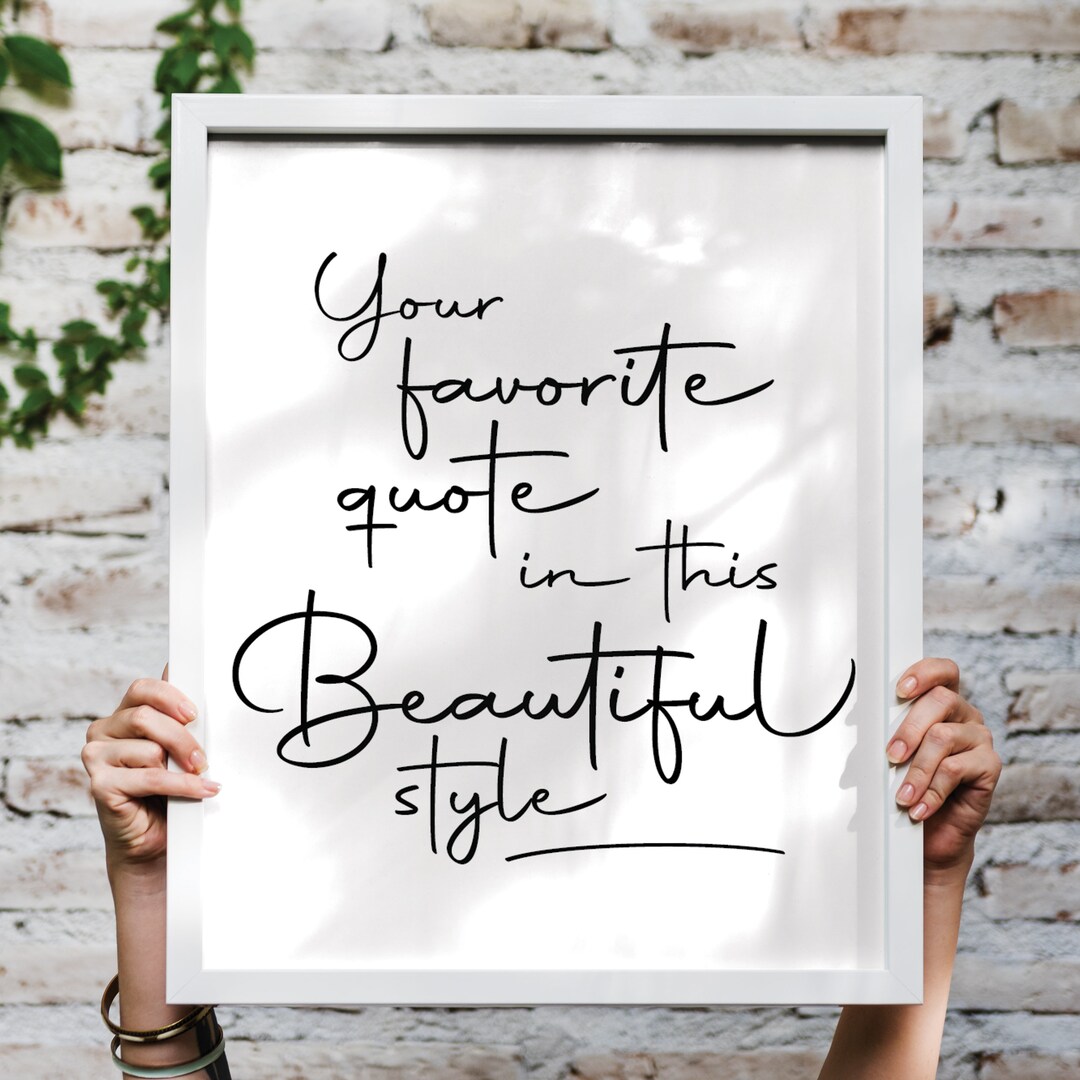 Your
favorite
quote
in this
Beautiful
style